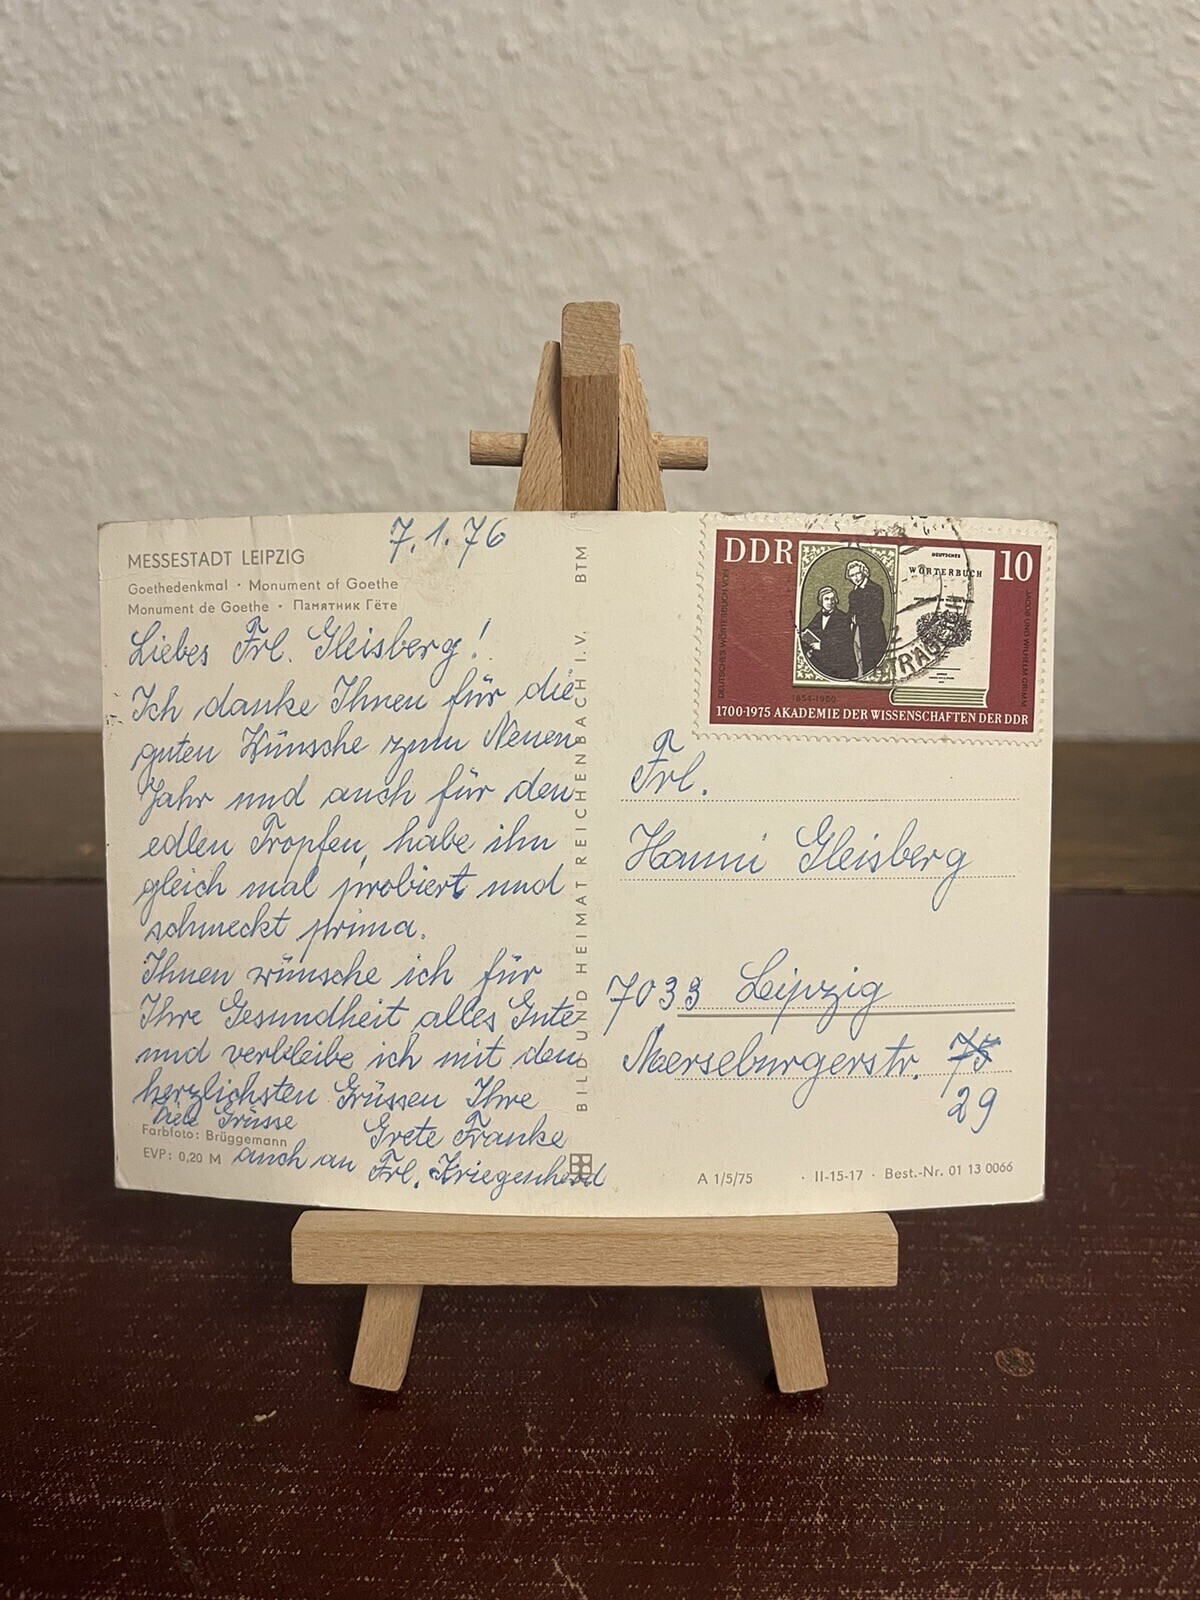 7.1.76
MESSESTADT LEIPZIG
Goethedenkmal · Monument of Goethe
Monument de Goethe · Памятник Гёте
Liebes Frl. Gleisberg!
Ich danke Ihnen für die
guten Wünsche zum Neuen
Jahr und auch für den
edlen Tropfen, habe ihn
gleich mal probiert und
schmeckt prima.
Ihnen wünsche ich für
Ihre Gesundheit alles Gute
und verbleibe ich mit den
herzlichsten Grüssen Ihre
Grete Franke
Viele Grüsse
auch an Frl. Kriegenherd
Farbfoto: Brüggemann
EVP: 0,20 M
BILD UND HEIMAT REICHENBACH I. V. BTM
DDR
10
DEUTSCHES
WÖRTERBUCH
DEUTSCHES WÖRTERBUCH VON
JACOB UND WILHELM GRIMM
1854-1960
1700-1975 AKADEMIE DER WISSENSCHAFTEN DER DDR
Frl.
Hanni Gleisberg
7033 Leipzig
Merseburgerstr. 75
29
A 1/5/75 · II-15-17 · Best.-Nr. 01 13 0066